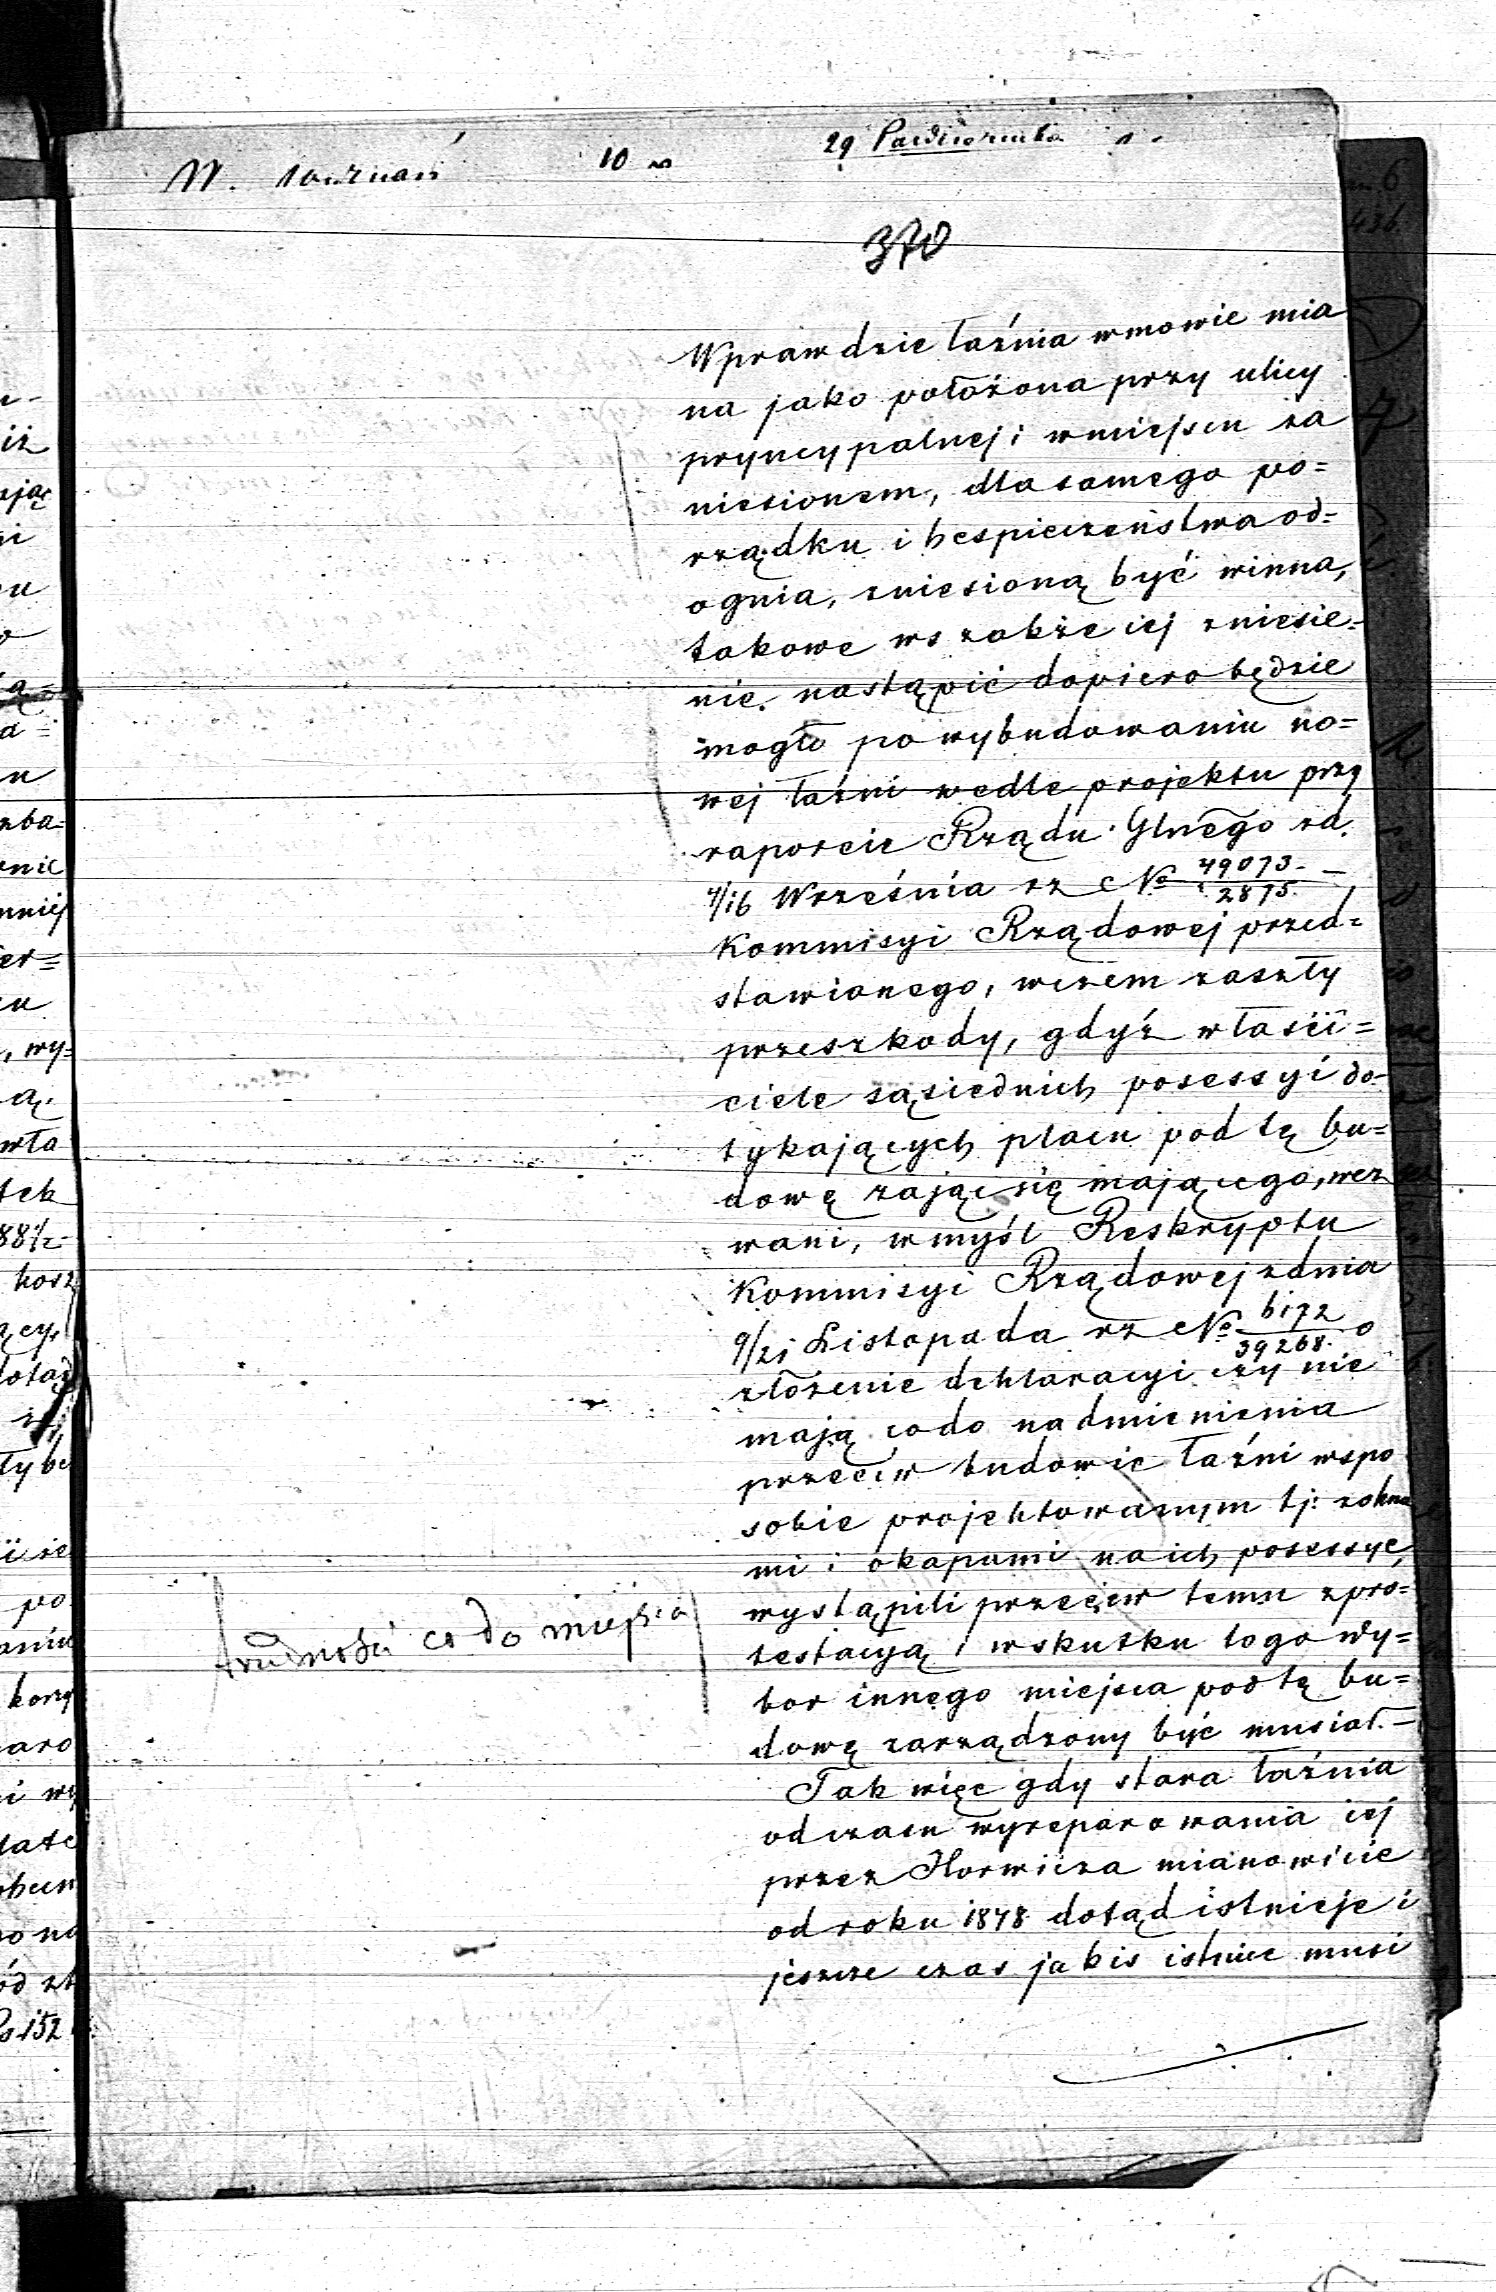 10
29 Października
370
Wprawdzie łaźnia w mowie mia
na jako położona przy ulicy
pryncypalnej i w miejscu za
niesionem, dla samego po=
rządku i bespieczeństwa od=
ognia, zniesioną być winna,
takowe wszakże iej zniesie=
nie nastąpić dopiero będzie
mogło po wybudowaniu no=
wej łaźni wedle projektu przy
raporcie Rządu Glnego zd.
4/16 Września rz No 49073/2875
Kommisyi Rządowej przed=
stawionego, wczem zaszły
przeszkody, gdyż właści=
ciele sąsiednich posessyi do-
tykających placu pod tę bu=
dowę zająć się mającego, wez
wani, w myśl Reskryptu
Kommisyi Rządowej zdnia
9/21 Listopada rz No 6172/39268 o
złożenie deklaracyi czy nie
mają co do nadmienienia
przeciw budowie łaźni wspo
sobie projektowanym tj: zokna
mi i okapami na ich posessye,
wystąpili przeciw temu zpro=
testacyą, wskutku togo wy=
bor innego miejsca pod tę bu=
dowę zarządzony być musiał.–
trudności co do miejsca
Tak więc gdy stara łaźnia
od czasu wyreparowania iej
przez Horwicza mianowicie
od roku 1848 dotąd istnieje i
jeszcze czas jakis istniec musi